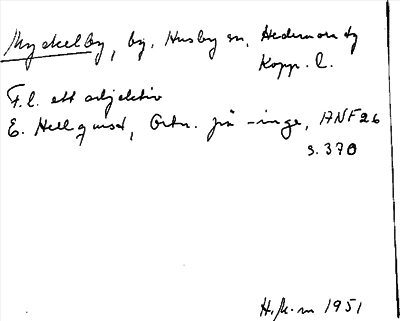 Myckelby, by, Husby sn, Hedemora tg
Kopp. l.
F.l. ett adjektiv
E. Hellquist, Ortn. på -inge, ANF 26
s. 370
H. St-m 1951